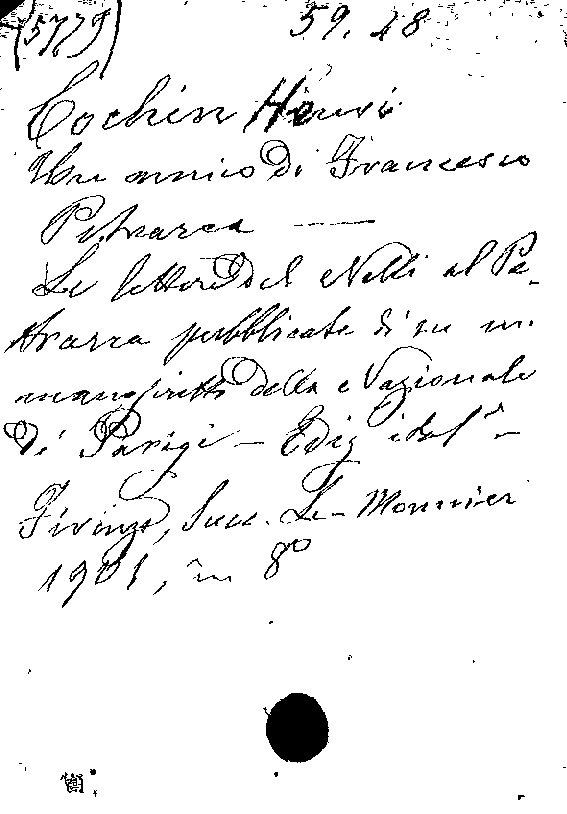 (5779) 59. 18
Cochin Henri
Un amico di Francesco
Petrarca —
Le lettere del Nelli al Pe-
trarca pubblicate di su un
manoscritto della Nazionale
di Parigi — Ediz. ital.ª —
Firenze, Succ. Le-Monnier
1901, in 8º